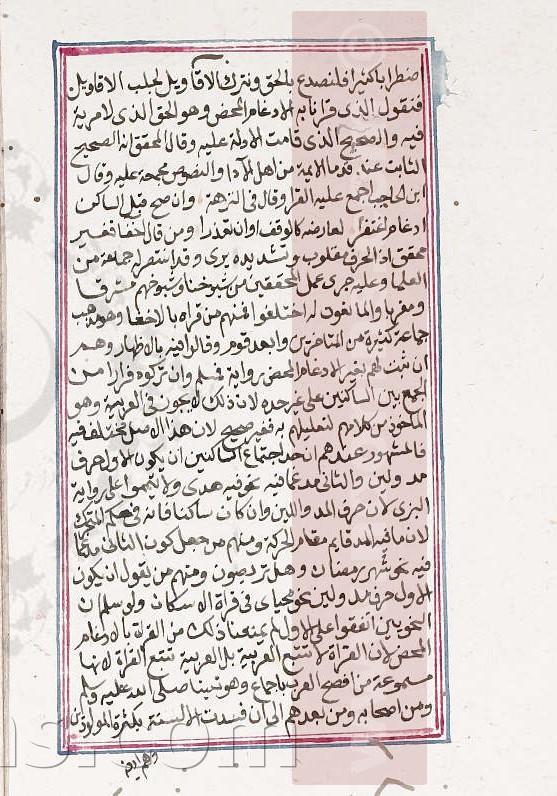 اضطرابا كثيرا فلنصدع بالحق ونترك الاقاويل لجلب الاقاويل
فنقول الذى قرانا به الادغام المحض وهو الحق الذى لامرية
فيه والصحيح الذى قامت الادلة عليه وقال المحقق انه الصحيح
الثابت عند قدما الايمة من اهل الادا والنصوص مجمعة عليه وقال
ابن الحاجب اجمع عليه القرا وقال فى النزهة وان صح قبل الساكن
ادغام اغتفر لعارضه كالوقف اوان تقدرا ومن قال اخفا فغير
محقق اذ الحرف مقلوب وتشديده يرى وقد انتصر له جماعة من
العلما وعليه جرى عمل المحققين من شيوخنا وشيوخهم مشرقا
ومغربا والمانعون له اختلفوا فمنهم من قراه بالاخفا وهو مذهب
جماعة كثيرة من المتاخرين وابعد قوم وقالوا فيه بالاظهار وهم
ان ثبت لهم بغير الادغام المحض رواية فمسلم وان تركوه فرارا من
الجمع بين الساكنين على غير حده لان ذلك لا يجوز فى العربية وهو
الماخوذ من كلامهم لتعليلهم به فغير صحيح لان هذا الاصل مختلف فيه
فالمشهور عندهم ان حد اجتماع الساكنين ان يكون الاول حرف
مد ولين والثانى مدغما فيه نحو فيه هدى ولا تيمموا على رواية
البزى لان حرف المد واللين وان كان ساكنا فانه فى حكم المتحرك
لان ما فيه المد قايم مقام الحركة ومنهم من جعل كون الثانى مدغما
فيه نحو شهر رمضان وهل تربصون ومنهم من يقول ان يكون
الاول حرف مد ولين نحو محياى فى قراة الاسكان ولو سلم ان
النحويين اتفقوا على الاول لم يمنعنا ذلك من القراة بالادغام
المحض لان القراة لا تتبع العربية بل العربية تتبع القراة لانها
مسموعة من افصح العرب باجماع وهو نبينا صلى الله عليه وسلم
ومن اصحابه ومن بعدهم الى ان فسدت الالسنة بكثرة المولدين
وهم ايضا